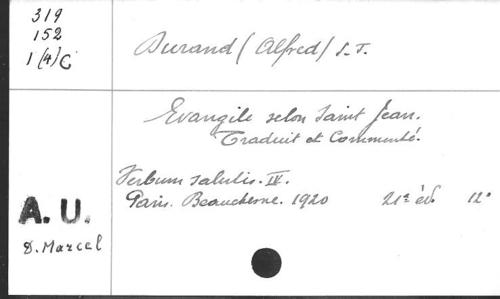 319
152
1(4)C
Durand (Alfred) S.J.
Evangile selon Saint Jean.
Traduit et Commenté.
Verbum salutis. IV.
Paris. Beauchesne. 1920 21e éd. 12°
A.U.
D. Marcel